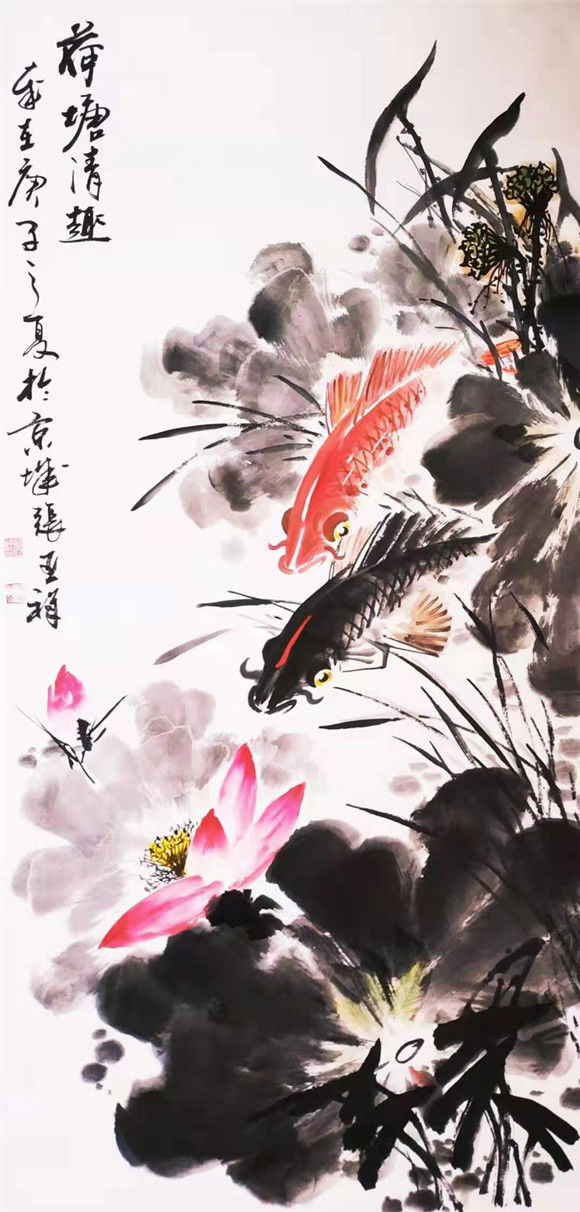 荷塘清趣
岁在庚子之夏於京城張亚祥